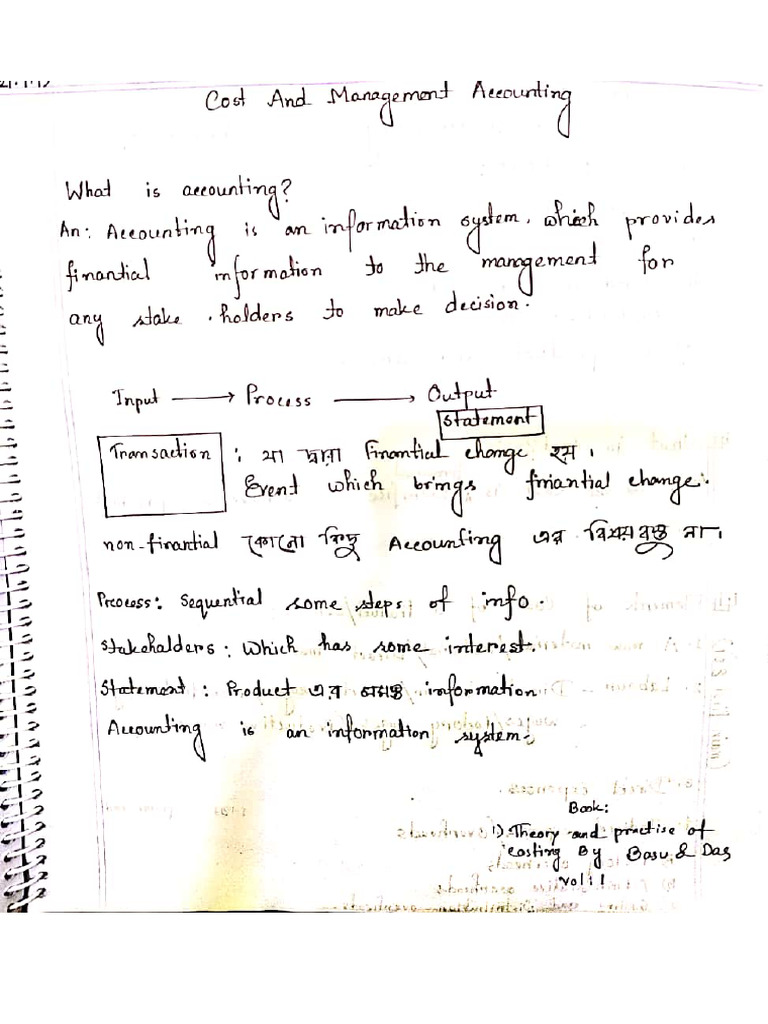 Cost And Management Accounting
What is accounting?
An: Accounting is an information system, which provides
finantial information to the management for
any stake holders to make decision.
Input → Process → Output
Statement
Transaction : যা দ্বারা Finantial change হয়।
Event which brings finantial change.
non-finantial কোনো কিছু Accounting এর বিষয়বস্তু না।
Process: Sequential some steps of info.
Stakeholders: Which has some interest.
Statement: Product এর সমস্ত information
Accounting is an information system.
Book:
1) Theory and practise of
costing By Basu & Das
vol: 1